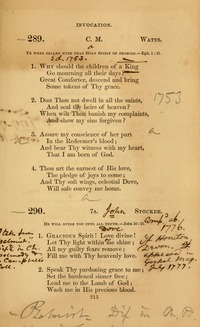 INVOCATION.
289. C. M. WATTS.
YE WERE SEALED WITH THAT HOLY SPIRIT OF PROMISE.—Eph. 1: 13.
1. WHY should the children of a King
Go mourning all their days
Great Comforter, descend and bring
Some tokens of Thy grace.
2. Dost Thou not dwell in all the saints,
And seal the heirs of heaven?
When wilt Thou banish my complaints,
And show my sins forgiven?
1753
3. Assure my conscience of her part
In the Redeemer's blood;
And bear Thy witness with my heart,
That I am born of God.
4. Thou art the earnest of His love,
The pledge of joys to come;
And Thy soft wings, celestial Dove,
Will safe convey me home.
290. 7s. John STOCKER.
HE WILL GUIDE YOU INTO ALL TRUTH.—John 16:
Dove
1776.
1. GRACIOUS Spirit! Love divine!
Let Thy light within me shine;
All my guilty fears remove;
Fill me with Thy heavenly love.
Gospel Mag.
July 1777.
2. Speak Thy pardoning grace to me;
Set the burdened sinner free;
Lead me to the Lamb of God;
Wash me in His precious blood.
213